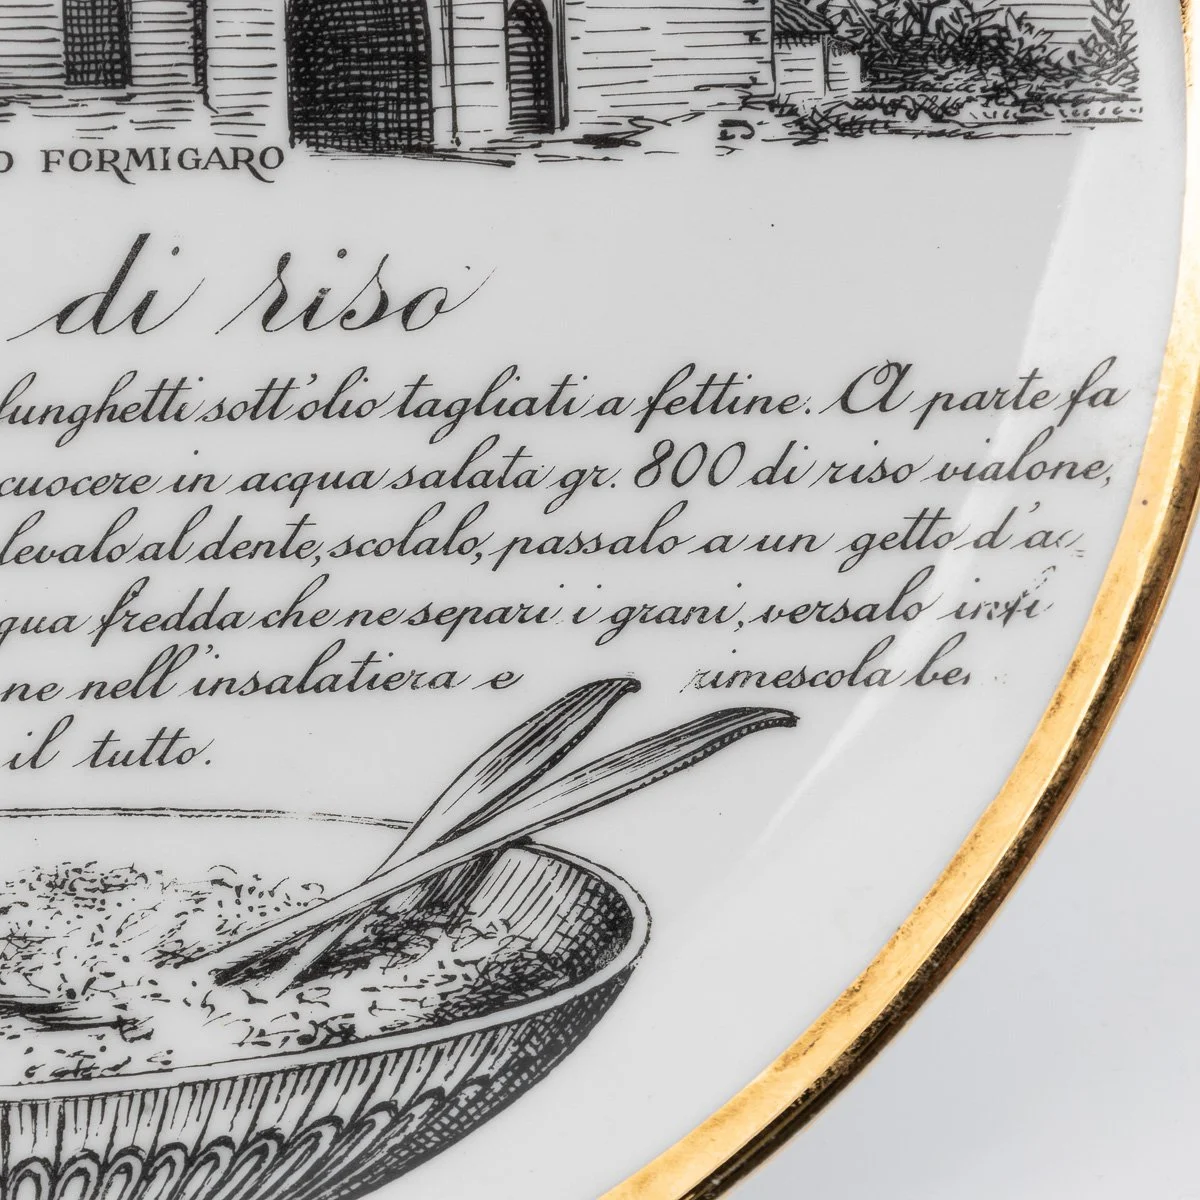 O FORMIGARO
di riso
lunghetti sott'olio tagliati a fettine. A parte fa
cuocere in acqua salata gr. 800 di riso vialone,
levalo al dente, scolalo, passalo a un getto d'ac-
qua fredda che ne separi i grani, versalo infi
ne nell'insalatiera e rimescola be
il tutto.